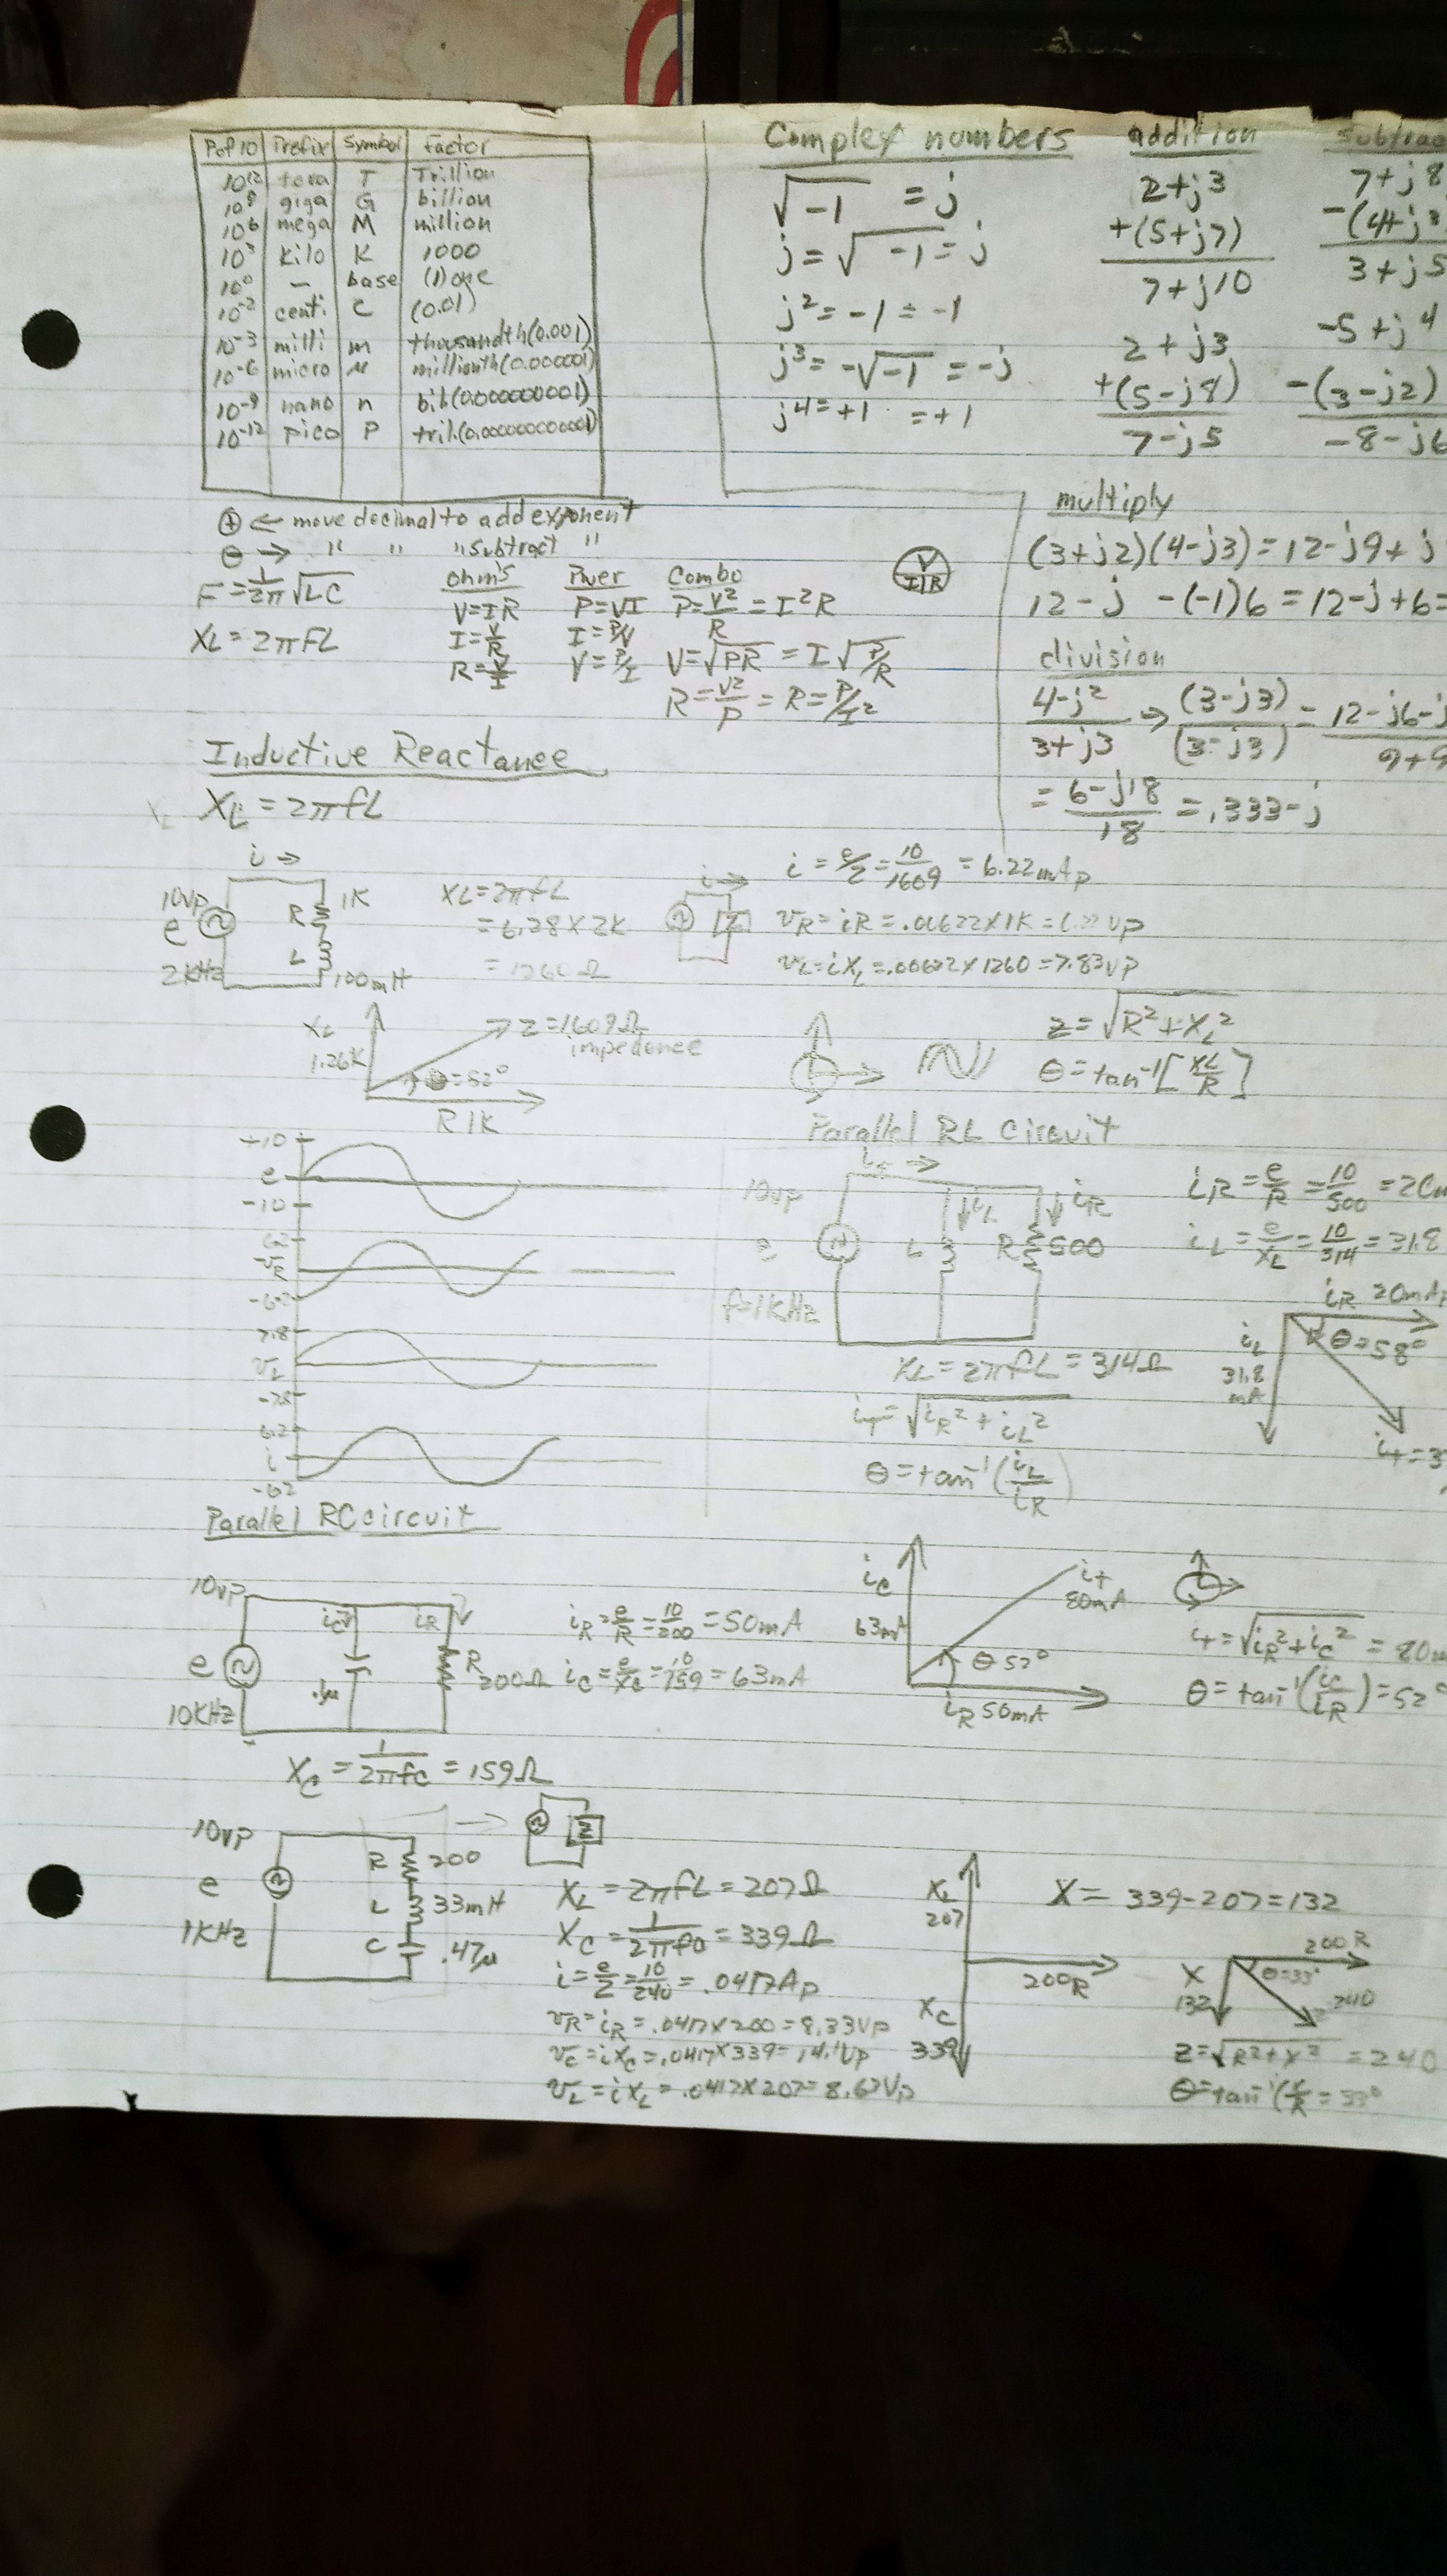 Pof10 Prefix Symbol factor
10¹² tera T Trillion
10⁹ giga G billion
10⁶ mega M million
10³ kilo K 1000
10⁰ — base (1) one
10⁻² centi c (0.01)
10⁻³ milli m thousandth(0.001)
10⁻⁶ micro μ millionth(0.000001)
10⁻⁹ nano n bil(0.000000001)
10⁻¹² pico P tril.(0.000000000001)
⊕ ← move decimal to add exponent
⊖ → " " " Subtract "
F = 1/2π √LC
XL = 2πFL
ohm's
V=IR
I=V/R
R=V/I
Power
P=VI
I=P/V
V=P/I
Combo
P=V²/R = I²R
V=√PR = I√P/R
R=V²/P = R=P/I²
V
I R
Complex numbers
√-1 = j
j=√-1 = j
j² = -1 = -1
j³ = -√-1 = -j
j⁴=+1 = +1
addition
2+j3
+(5+j7)
7+j10
2+j3
+(5-j8)
7-j5
Subtrac
7+j8
-(4+j3
3+j5
-5+j4
-(3-j2)
-8-j6
multiply
(3+j2)(4-j3)=12-j9+j
12-j -(-1)6=12-j+6=
division
4-j2/3+j3 → (3-j3)/(3-j3) = 12-j6-j/9+9
= 6-j18/18 = .333-j
Inductive Reactance
XL = 2πfL
i →
10vp
e
2KHz
R 1K
L
100mH
XL=2πfL
=6.28×2K
=1260Ω
i →
Z
i = e/z = 10/1609 = 6.22mAp
vR = iR = .00622×1K =
vp
vL=iXL=.00622×1260=7.83vp
XL
1.26K
Z=1609Ω
impedence
θ=52°
R 1K
Z=√R²+XL²
θ=tan⁻¹[XL/R]
+10
e
-10
6.2
vR
-6.2
7.8
vL
-7.8
6.2
i
-6.2
Parallel RL Circuit
→
10vp
e
f=1KHz
iL
iR
L
R 500
iR = e/R = 10/500 = 20m
iL = e/XL = 10/314 = 31.8
XL = 2πfL = 314Ω
iT=√iR²+iL²
θ=tan⁻¹(iL/iR)
iR 20mAp
iL
31.8
mA
θ=58°
it=3
Parallel RC circuit
10vp
e
10KHz
ic
iR
.1μ
R
200Ω
iR = e/R = 10/200 = 50mA
ic = e/Xc = 10/159 = 63mA
Xc = 1/2πfc = 159Ω
ic
63mA
it
80mA
θ 52°
iR 50mA
it=√iR²+ic² = 80m
θ=tan⁻¹(ic/iR)=52°
10vp
e
1KHz
R 200
L 33mH
C .47μ
→
Z
XL = 2πfL = 207Ω
Xc = 1/2πfc = 339Ω
i = e/Z = 10/240 = .0417Ap
vR=iR=.0417×200=8.33Vp
vc=iXc=.0417×339=14.1Vp
vL=iXL=.0417×207=8.63Vp
XL
207
200R
Xc
339
X = 339-207=132
200R
X
132
θ=33°
240
Z=√R²+X² = 240
θ=tan⁻¹(X/R = 33°